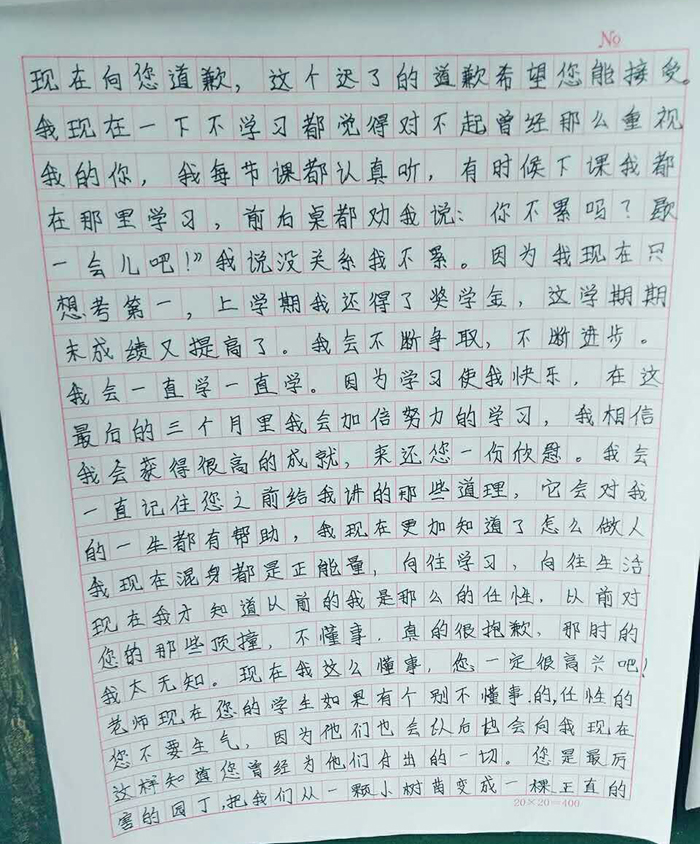 No
现在向您道歉，这个迟了的道歉希望您能接受。
我现在一下不学习都觉得对不起曾经那么重视
我的你，我每节课都认真听，有时候下课我都
在那里学习，前后桌都劝我说：你不累吗？歇
一会儿吧！”我说没关系我不累。因为我现在只
想考第一，上学期我还得了奖学金，这学期期
末成绩又提高了。我会不断争取，不断进步。
我会一直学一直学。因为学习使我快乐，在这
最后的三个月里我会加倍努力的学习，我相信
我会获得很高的成就，来还您一份欣慰。我会
一直记住您之前给我讲的那些道理，它会对我
的一生都有帮助，我现在更加知道了怎么做人
我现在混身都是正能量，向往学习，向往生活
现在我才知道以前的我是那么的任性，以前对
您的那些顶撞，不懂事，真的很抱歉，那时的
我太无知。现在我这么懂事，您一定很高兴吧！
老师现在您的学生如果有个别不懂事的，任性的
您不要生气，因为他们也会以后也会向我现在
这样知道您曾经为他们付出的一切。您是最厉
害的园丁，把我们从一颗小树苗变成一棵正直的
20×20=400